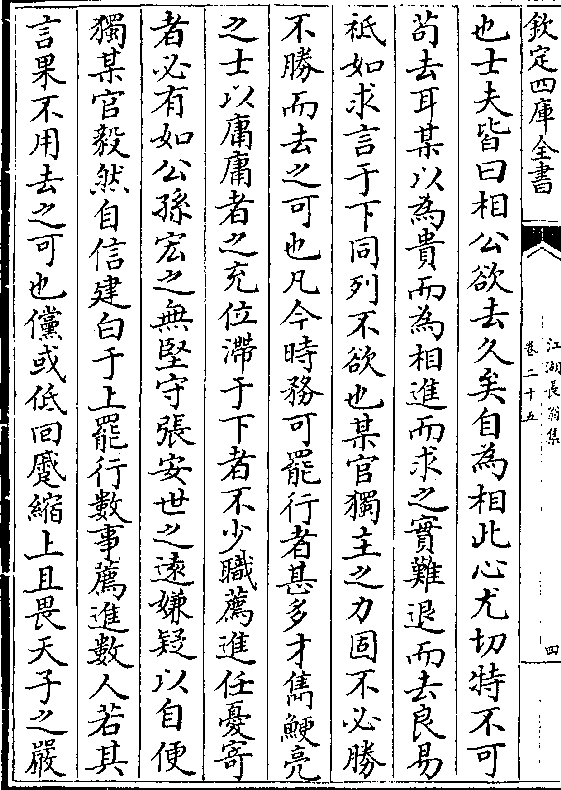 欽定四庫全書
江湖長翁集
卷二十五
四
也士夫皆曰相公欲去久矣自為相此心尤切特不可
苟去耳某以為貴而為相進而求之實難退而去良易
祗如求言于下同列不欲也某官獨主之力固不必勝
不勝而去之可也凡今時務可罷行者甚多才雋鯁亮
之士以庸庸者之充位滯于下者不少職薦進任憂寄
者必有如公孫宏之無堅守張安世之遠嫌疑以自便
獨某官毅然自信建白于上罷行數事薦進數人若其
言果不用去之可也儻或低回蹙縮上且畏天子之嚴